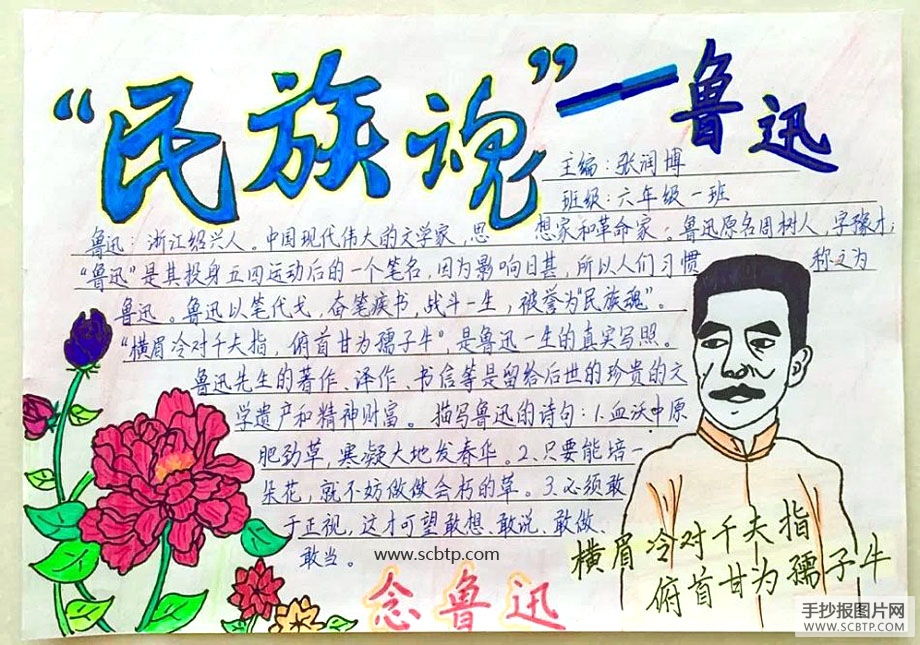 “民族魂”——鲁迅
主编：张润博
班级：六年级一班
鲁迅：浙江绍兴人。中国现代伟大的文学家，思 想家和革命家。鲁迅原名周树人，字豫才；
“鲁迅”是其投身五四运动后的一个笔名，因为影响日甚，所以人们习惯 称之为
鲁迅。鲁迅以笔代戈，奋笔疾书，战斗一生，被誉为“民族魂”。
“横眉冷对千夫指，俯首甘为孺子牛”，是鲁迅一生的真实写照。
鲁迅先生的著作、泽作、书信等是留给后世的珍贵的文
学遗产和精神财富。描写鲁迅的诗句：1.血沃中原
肥劲草，寒凝大地发春华。2.只要能培一
朵花，就不妨做做会朽的草。3.必须敢
于正视，这才可望敢想、敢说、敢做、
敢当。
www.scbtp.com
横眉冷对千夫指
俯首甘为孺子牛
念鲁迅
手抄报图片网
WWW.SCBTP.COM